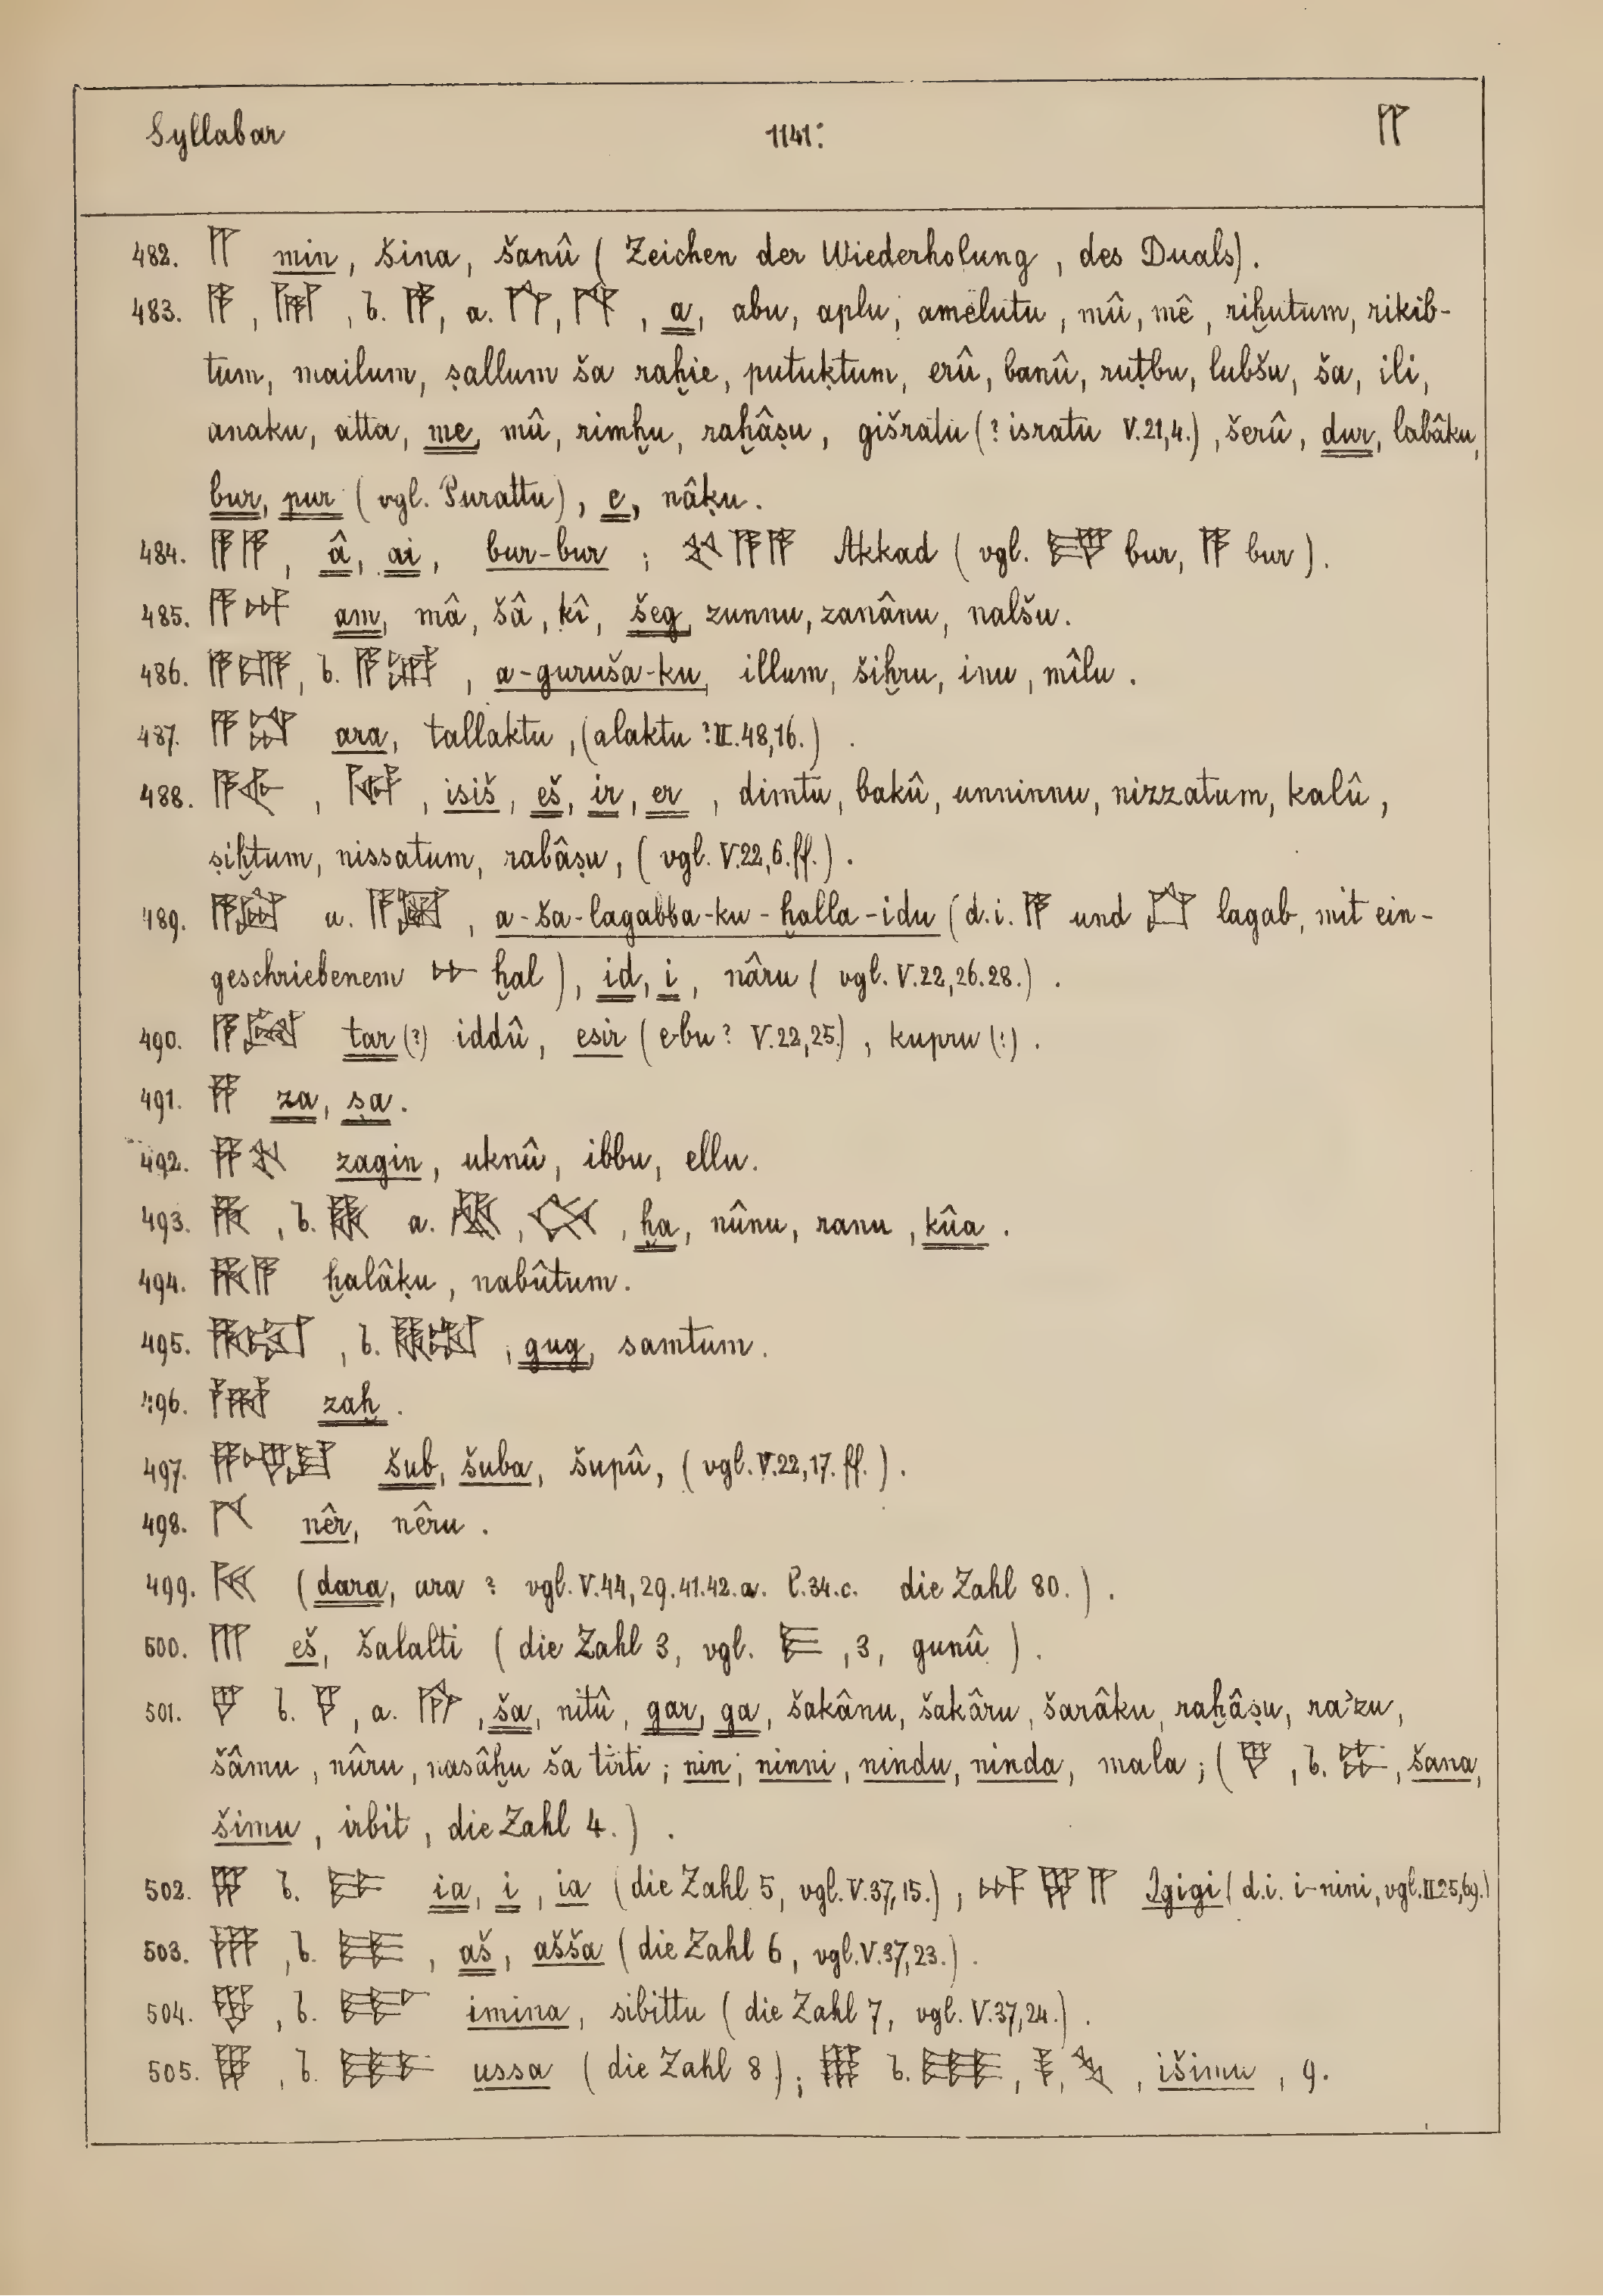 Syllabar 1141: 𒈫
482. 𒈫 min, šina, šanû (Zeichen der Wiederholung, des Duals).
483. 𒀀, , b. , a. , , a, abu, aplu, amêlutu, mû, mê, riḫutum, rikib-
tum, mailum, ṣallum ša raḫie, putuḳtum, erû, banû, ruṭbu, lubšu, ša, ili,
anaku, atta, me, mû, rimḫu, raḫâṣu, gišratu (? isratu V.21,4.), šerû, dur, labâku,
bur, pur (vgl. Purattu), e, nâḳu.
484. 𒀀𒀀, â, ai, bur-bur; 𒆳𒀀𒀀 Akkad (vgl. bur, 𒀀 bur).
485. 𒀀𒀭 am, mâ, šâ, ḳî, šeg, zunnu, zanânu, nalšu.
486. , b. , a-guruša-ku, illum, šiḫru, inu, mîlu.
487. 𒀀𒁺 ara, tallaktu, (alaktu? II.48,16.).
488. 𒀀𒅆, , isiš, eš, ir, er, dimtu, bakû, unninnu, nizzatum, kalû,
ṣiḫtum, nissatum, rabâṣu, (vgl. V.22,6.ff.).
489. u. , a-ša-lagabba-ku-ḫalla-idu (d.i. 𒀀 und 𒆸 lagab, mit ein-
geschriebenem 𒄬 ḫal), id, i, nâru (vgl. V.22,26.28.).
490. tar (?) iddû, esir (e-bu? V.22,25.), kupru (?).
491. 𒍝 za, ṣa.
492. 𒍝𒆳 zagin, uknû, ibbu, ellu.
493. 𒄩, b. a. , , ḫa, nûnu, ranu, kûa.
494. 𒄩𒀀 ḫalâḳu, nabûtum.
495. , b. , gug, samtum.
496. zaḫ.
497. šub, šuba, šupû, (vgl. V.22,17.ff.).
498. nêr, nêru.
499. (dara, ara? vgl. V.44,29.41.42.a. C.34.c. die Zahl 80.).
500. 𒐈 eš, šalalti (die Zahl 3, vgl. , 3, gunû).
501. 𒃻 b. , a. , ša, nitû, gar, ga, šakânu, šakâru, šarâku, raḫâṣu, ra'zu,
šâmu, nûru, nasâḫu ša tirti; nin; ninni, nindu, ninda, mala; (𒐉, b. , šana,
šimu, irbit, die Zahl 4.).
502. 𒐊 b. ia, i, ia (die Zahl 5, vgl. V.37,15.), 𒀭𒐊𒈫 Igigi (d.i. i-nini, vgl. II 25,69.)
503. 𒐋, b. , aš, ašša (die Zahl 6, vgl. V.37,23.).
504. 𒐌, b. imina, sibittu (die Zahl 7, vgl. V.37,24.).
505. 𒐍, b. ussa (die Zahl 8); 𒐎 b. , , , išimu, 9.